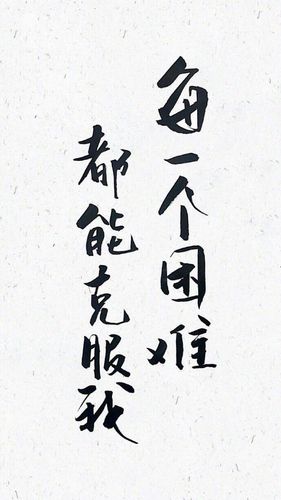 每一个困难
都能克服我